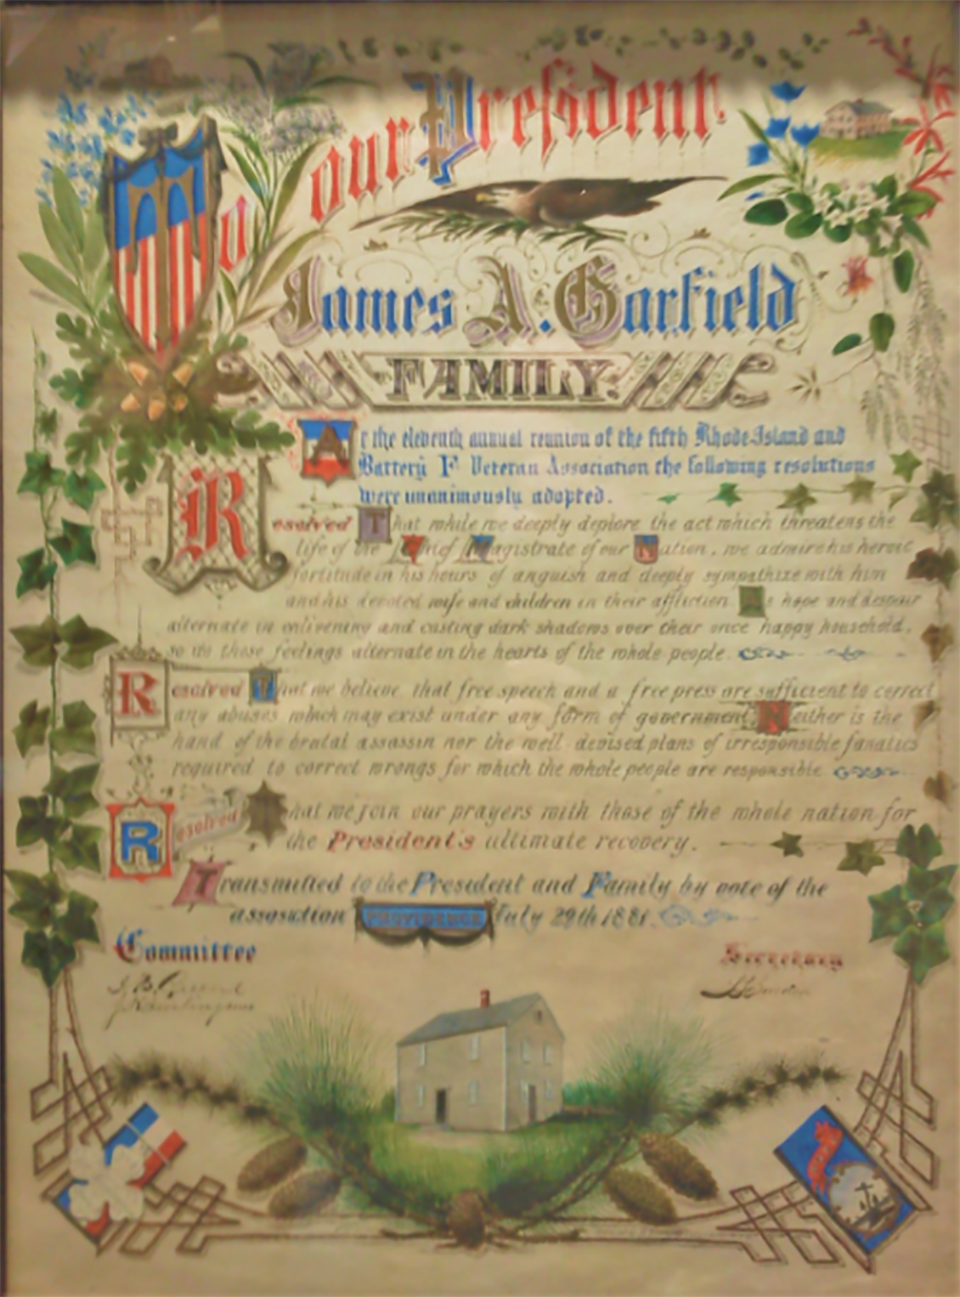 To our President
James A. Garfield
FAMILY
At the eleventh annual reunion of the fifth Rhode Island and
Battery F Veteran Association the following resolutions
were unanimously adopted.
Resolved That while we deeply deplore the act which threatens the
life of the Chief Magistrate of our Nation, we admire his heroic
fortitude in his hours of anguish and deeply sympathize with him
and his devoted wife and children in their affliction. As hope and despair
alternate in enlivening and casting dark shadows over their once happy household,
so do those feelings alternate in the hearts of the whole people.
Resolved That we believe that free speech and a free press are sufficient to correct
any abuses which may exist under any form of government, Neither is the
hand of the brutal assassin nor the well devised plans of irresponsible fanatics
required to correct wrongs for which the whole people are responsible.
Resolved That we join our prayers with those of the whole nation for
the President's ultimate recovery.
Transmitted to the President and Family by vote of the
assosiation PROVIDENCE July 29th 1881.
Committee
Secretary